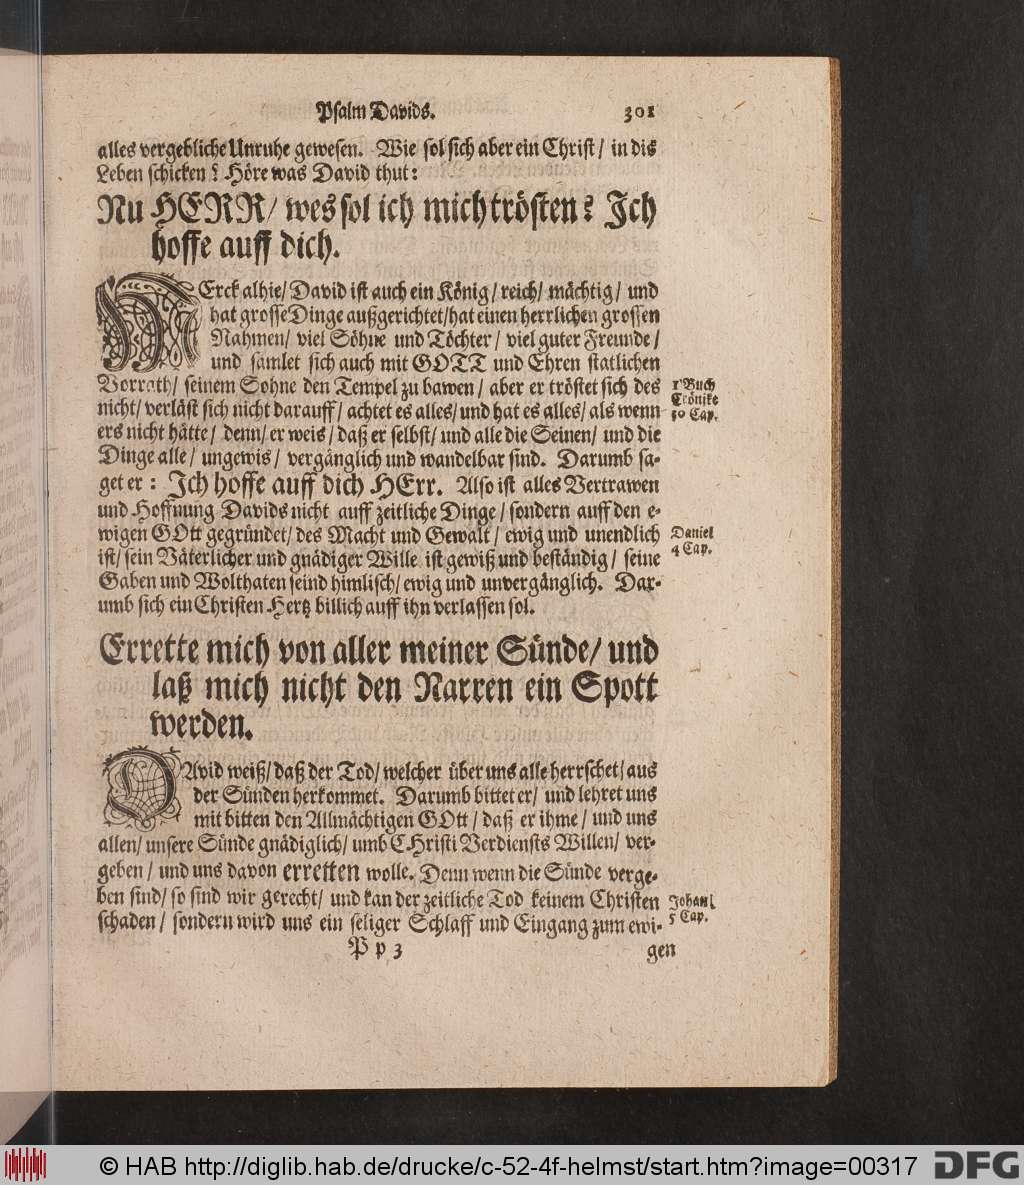 Psalm Davids. 301
alles vergebliche Unruhe gewesen. Wie sol sich aber ein Christ / in dis
Leben schicken? Höre was David thut:
Nu HERR / wes sol ich mich trösten? Ich
hoffe auff dich.
MErck alhie / David ist auch ein König / reich / mächtig / und
hat grosse Dinge außgerichtet / hat einen herrlichen grossen
Nahmen / viel Söhne und Töchter / viel guter Freunde /
und samlet sich auch mit GOTT und Ehren statlichen
Vorrath / seinem Sohne den Tempel zu bawen / aber er tröstet sich des
1 Buch
nicht / verläst sich nicht darauff / achtet es alles / und hat es alles / als wenn
Crönike
30 Cap.
ers nicht hätte / denn / er weis / daß er selbst / und alle die Seinen / und die
Dinge alle / ungewis / vergänglich und wandelbar sind. Darumb sa-
get er: Ich hoffe auff dich HErr. Also ist alles Vertrawen
und Hoffnung Davids nicht auff zeitliche Dinge / sondern auff den e-
wigen GOtt gegründet / des Macht und Gewalt / ewig und unendlich
Daniel
4 Cap.
ist / sein Väterlicher und gnädiger Wille ist gewiß und beständig / seine
Gaben und Wolthaten seind himlisch / ewig und unvergänglich. Dar-
umb sich ein Christen Hertz billich auff ihn verlassen sol.
Errette mich von aller meiner Sünde / und
laß mich nicht den Narren ein Spott
werden.
DAvid weiß / daß der Tod / welcher über uns alle herrschet / aus
der Sünden herkommet. Darumb bittet er / und lehret uns
mit bitten den Allmächtigen GOtt / daß er ihme / und uns
allen / unsere Sünde gnädiglich / umb CHristi Verdiensts Willen / ver-
geben / und uns davon erretten wolle. Denn wenn die Sünde verge-
ben sind / so sind wir gerecht / und kan der zeitliche Tod keinem Christen
Johan
5 Cap.
schaden / sondern wird uns ein seliger Schlaff und Eingang zum ewi-
P p 3 gen
© HAB http://diglib.hab.de/drucke/c-52-4f-helmst/start.htm?image=00317 DFG